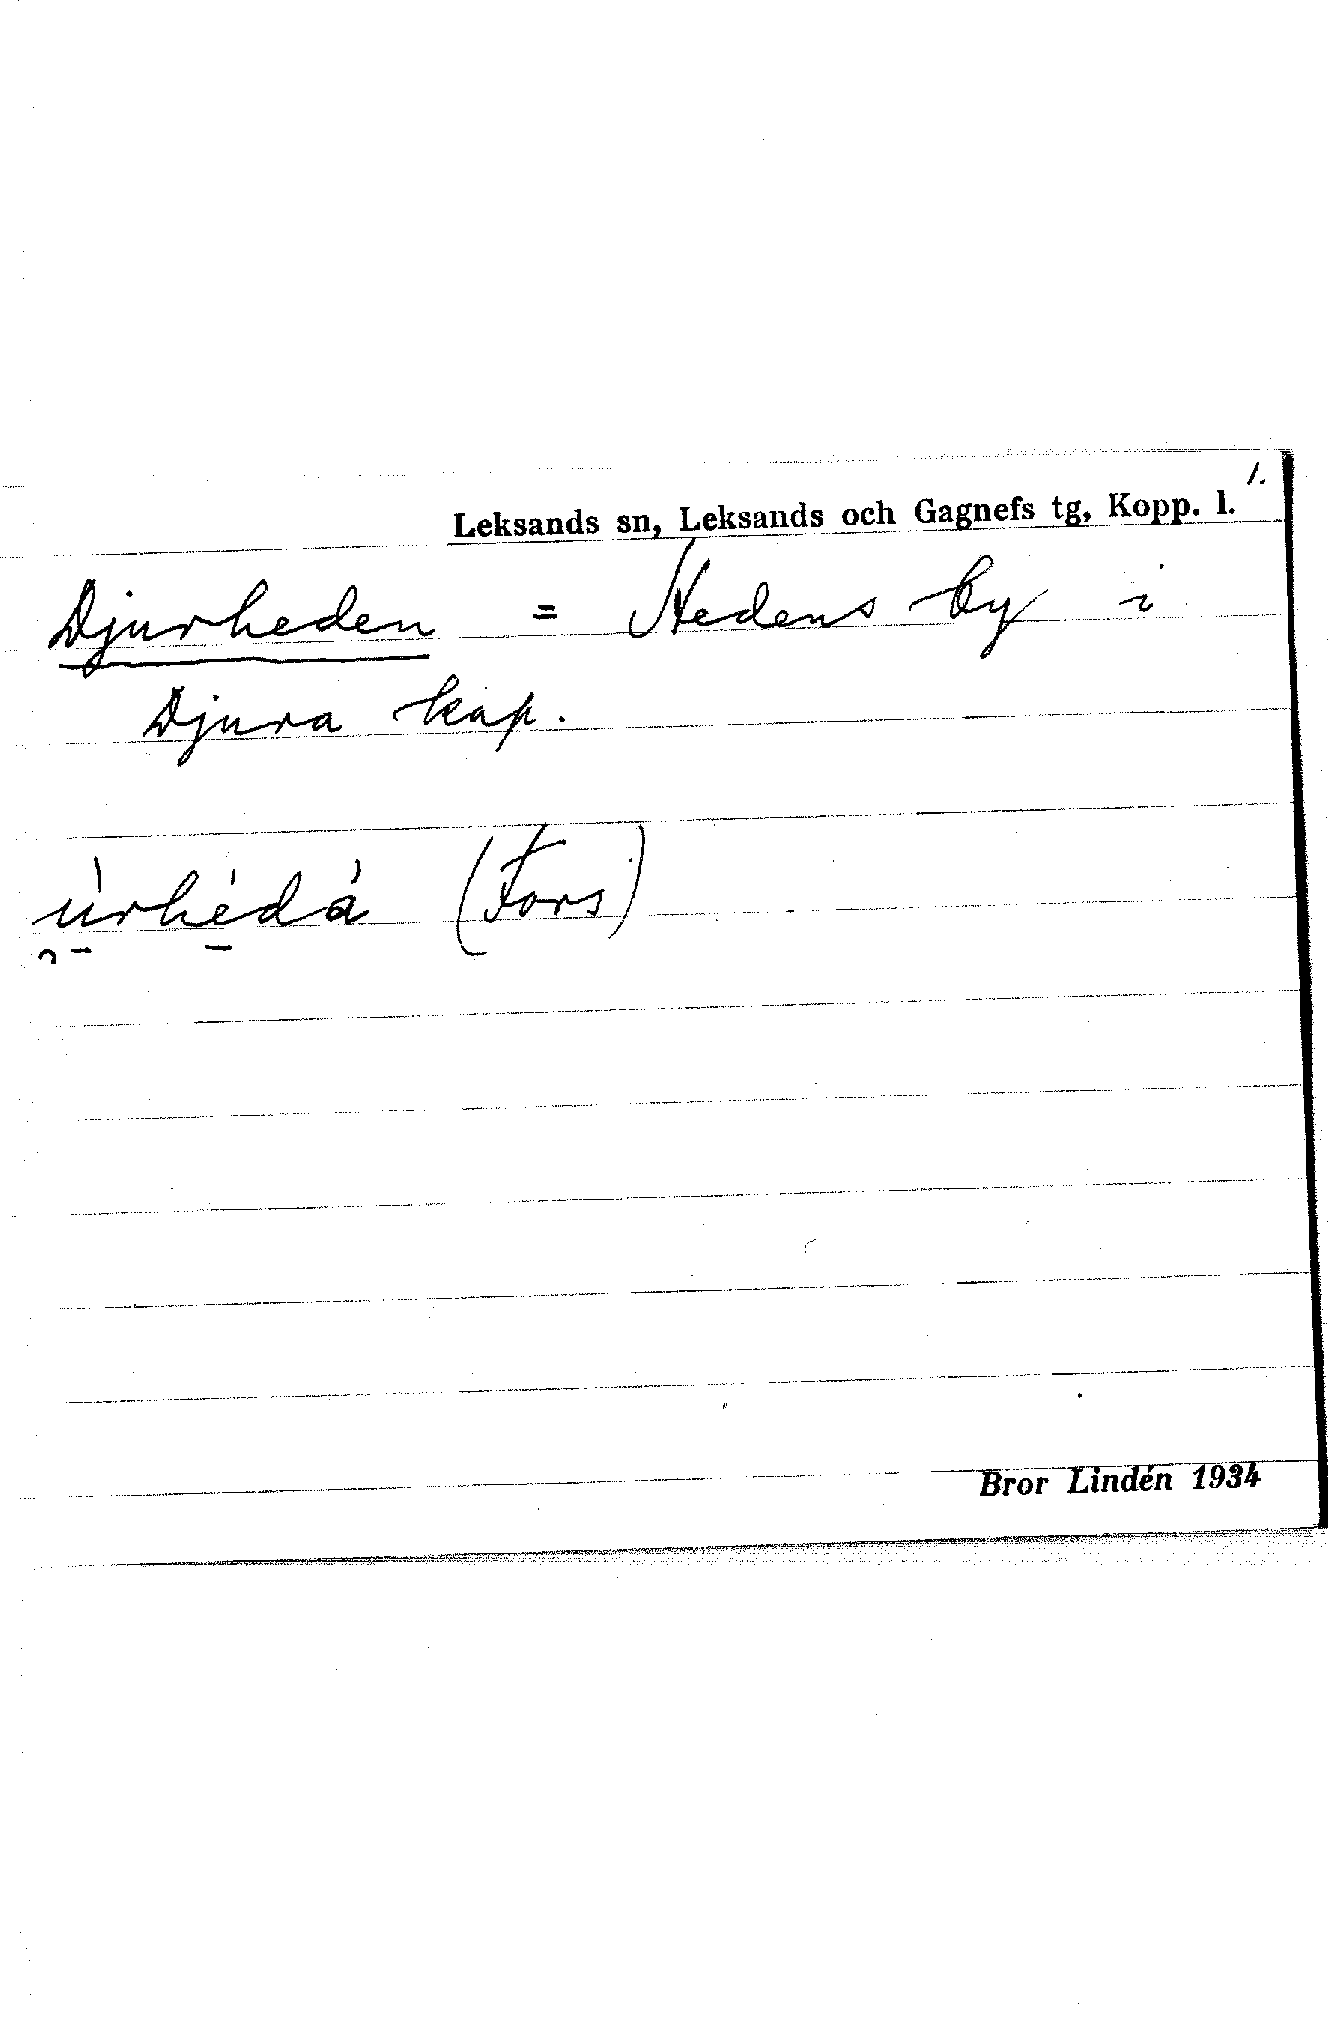 1.
Leksands sn, Leksands och Gagnefs tg, Kopp. l.
Djurheden = Hedens by i
Djura kap.
úrhédá (Fors)
Bror Lindén 1934